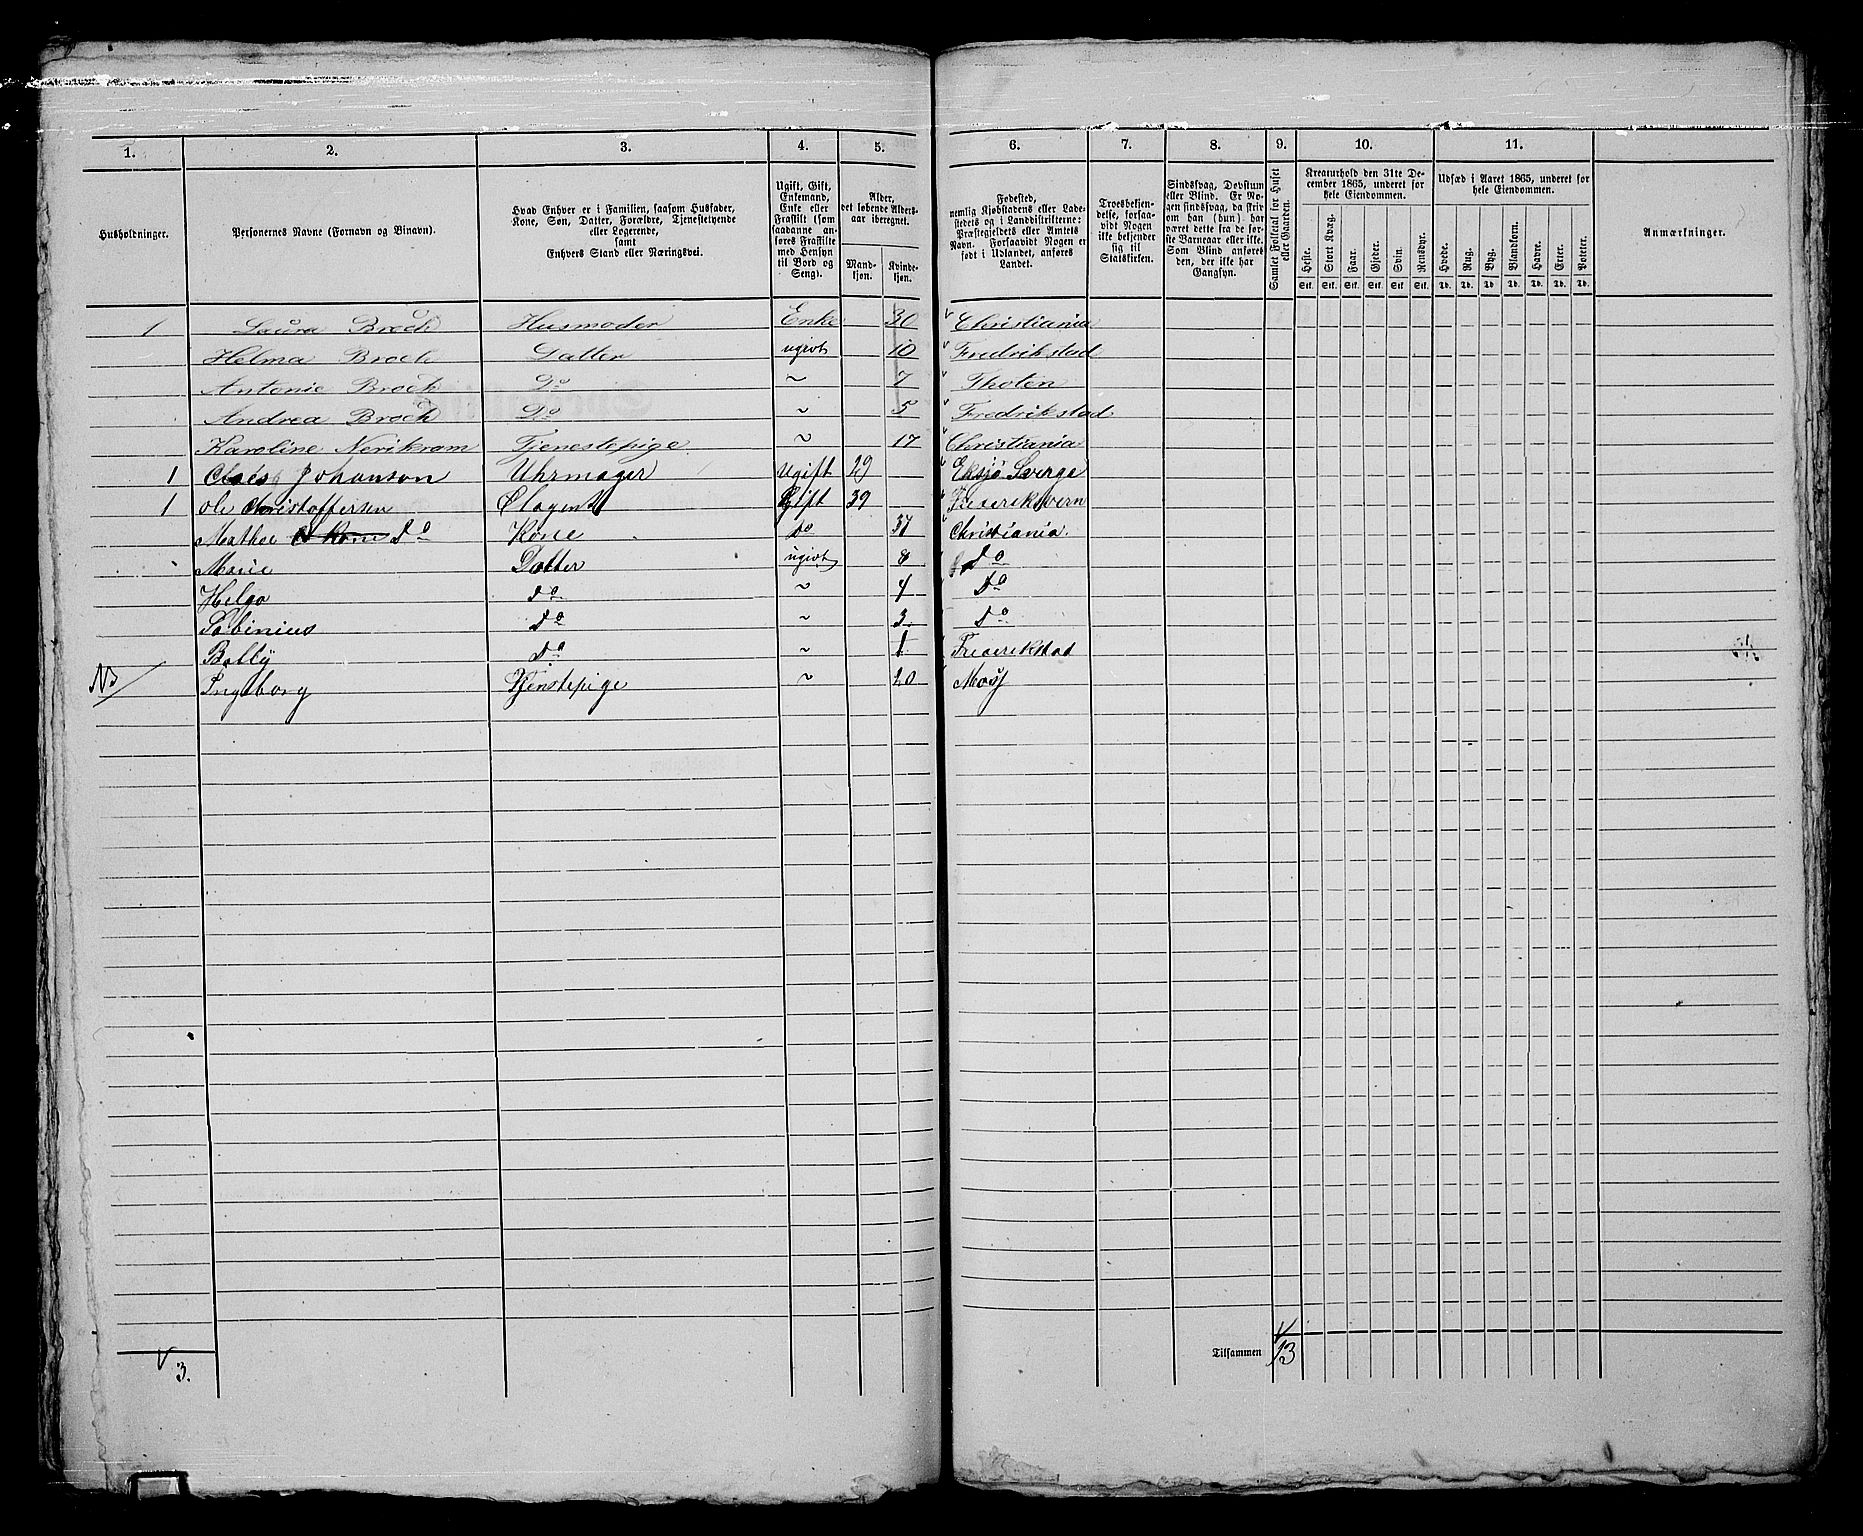 1. 2. 3. 4. 5. 6. 7. 8. 9. 10. 11.
Husholdninger.
Personernes Navne (Fornavn og Binavn).
Hvad Enhver er i Familien, saasom Husfader,
Kone, Søn, Datter, Forældre, Tjenestetyende
eller Logerende,
samt
Enhvers Stand eller Næringsvei.
Ugift, Gift,
Enkemand,
Enke eller
Fraskilt (som
saadanne an-
føres Fraskilte
med Hensyn
til Bord og
Seng).
Alder,
det løbende Alders-
aar iberegnet.
Mand-
kjøn.
Kvinde-
kjøn.
Fødested,
nemlig Kjøbstadens eller Lade-
stedets og i Landdistrikterne:
Præstegjeldets eller Amtets
Navn. Forsaavidt Nogen er
født i Udlandet, anføres
Landet.
Troesbekjen-
delse, forsaa-
vidt Nogen
ikke bekjender
sig til
Statskirken.
Sindssvag, Døvstum
eller Blind. Er No-
gen sindssvag, da skriv
om han (hun) har
været dette fra de før-
ste Barneaar eller ikke.
Som Blind anføres
den, der ikke har
Gangsyn.
Samlet Folketal for Huset
eller Gaarden.
Kreaturhold den 31te De-
cember 1865, underet for
hele Eiendommen.
Heste. Stort Kvæg. Faar. Gjeder. Svin. Rensdyr.
Stk. Stk. Stk. Stk. Stk. Stk.
Udsæd i Aaret 1865, underet for
hele Eiendommen.
Hvede. Rug. Byg. Blandkorn. Havre. Erter. Poteter.
Td. Td. Td. Td. Td. Td. Td.
Anmærkninger.
1 Laura Broch Husmoder Enke 30 Christiania
Helma Broch Datter ugivt 10 Fredrikstad
Antonie Broch Do ~ 7 Thoten
Andrea Broch Do ~ 5 Fredrikstad
Karoline Tjenestepige ~ 17 Christiania
1 Claes Johanson Uhrmager Ugift 29 Eksjø Sverge
1 Ole Christoffersen Gift 39 Frederiksvern
Mathee Do Kone do 37 Christiania.
Marie Datter ugivt 8 do
Helga do ~ 4 do
Sabinius do ~ 3 do
Bolly do ~ 1 Frederikstad
NB Ingeborg Tjenstepige ~ 20 Moss
3.
Tilsammen 13